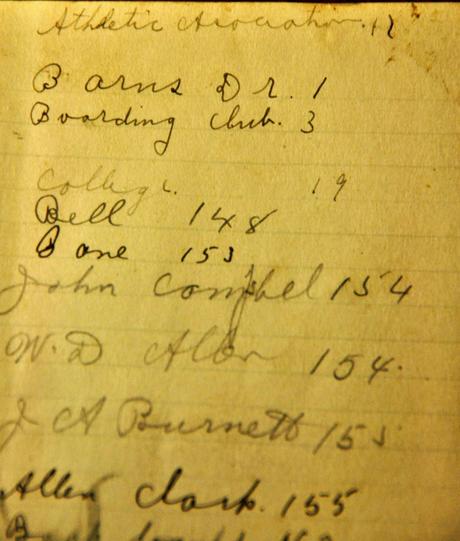 Athletic Asociation. 12
Barns Dr. 1
Boarding club. 3
College. 19
Bell 148
Bane 153
John Campbel 154
W. D Allen 154.
J A Burnett 155
Allen Clark. 155